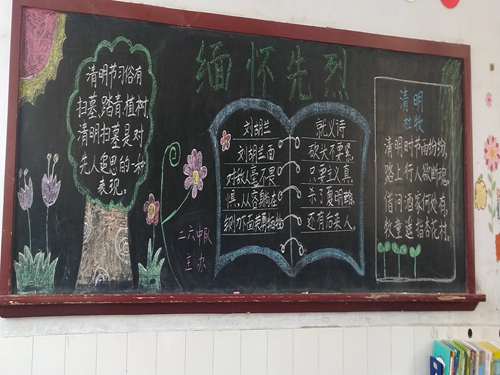 缅怀先烈
清明节习俗有
扫墓、踏青、植树,
清明扫墓是对
先人追思的一种
表现。
刘胡兰
刘胡兰面
对敌人毫不畏
惧,从容躺在
就义诗
砍头不要紧,
只要主义真。
杀了夏明翰,
还有后来人。
清明
杜牧
清明时节雨纷纷,
路上行人欲断魂。
借问酒家何处有,
牧童遥指杏花村。
二六中队
主办